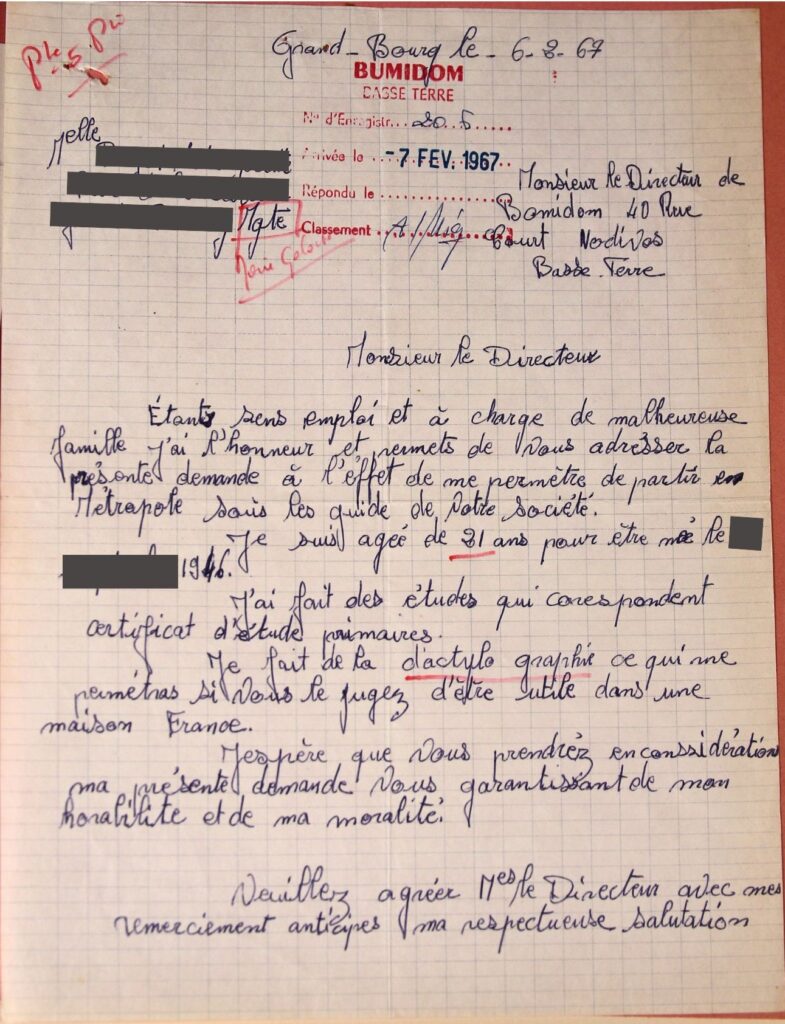 Grand-Bourg le - 6-2-67
BUMIDOM
BASSE TERRE
N° d'Enregistr... 20.5
Arrivée le -7 FEV. 1967
Répondu le
Classement
Melle
Mgte
Monsieur le Directeur de
Bomidom 40 Rue
Court Nodivos
Basse-Terre
Monsieur le Directeur
Étants sens emploi et à charge de malheureuse
famille j'ai l'honneur et permets de vous adresser la
présente demande à l'éffet de me permètre de partir en
Métrapole sous les guide de votre société.
Je suis ageé de 21 ans pour être née le
1946.
J'ai fait des études qui corespondent
certificat d'étude primaires.
Je fait de la dactylo graphie ce qui me
permétras si vous le jugez d'être utile dans une
maison France.
J'espère que vous prendrèz en conssidération
ma présente demande vous garantissant de mon
horabilité et de ma moralité.
Veuillez agréer Mes le Directeur avec mes
remerciement anticipes ma respectueuse salutation